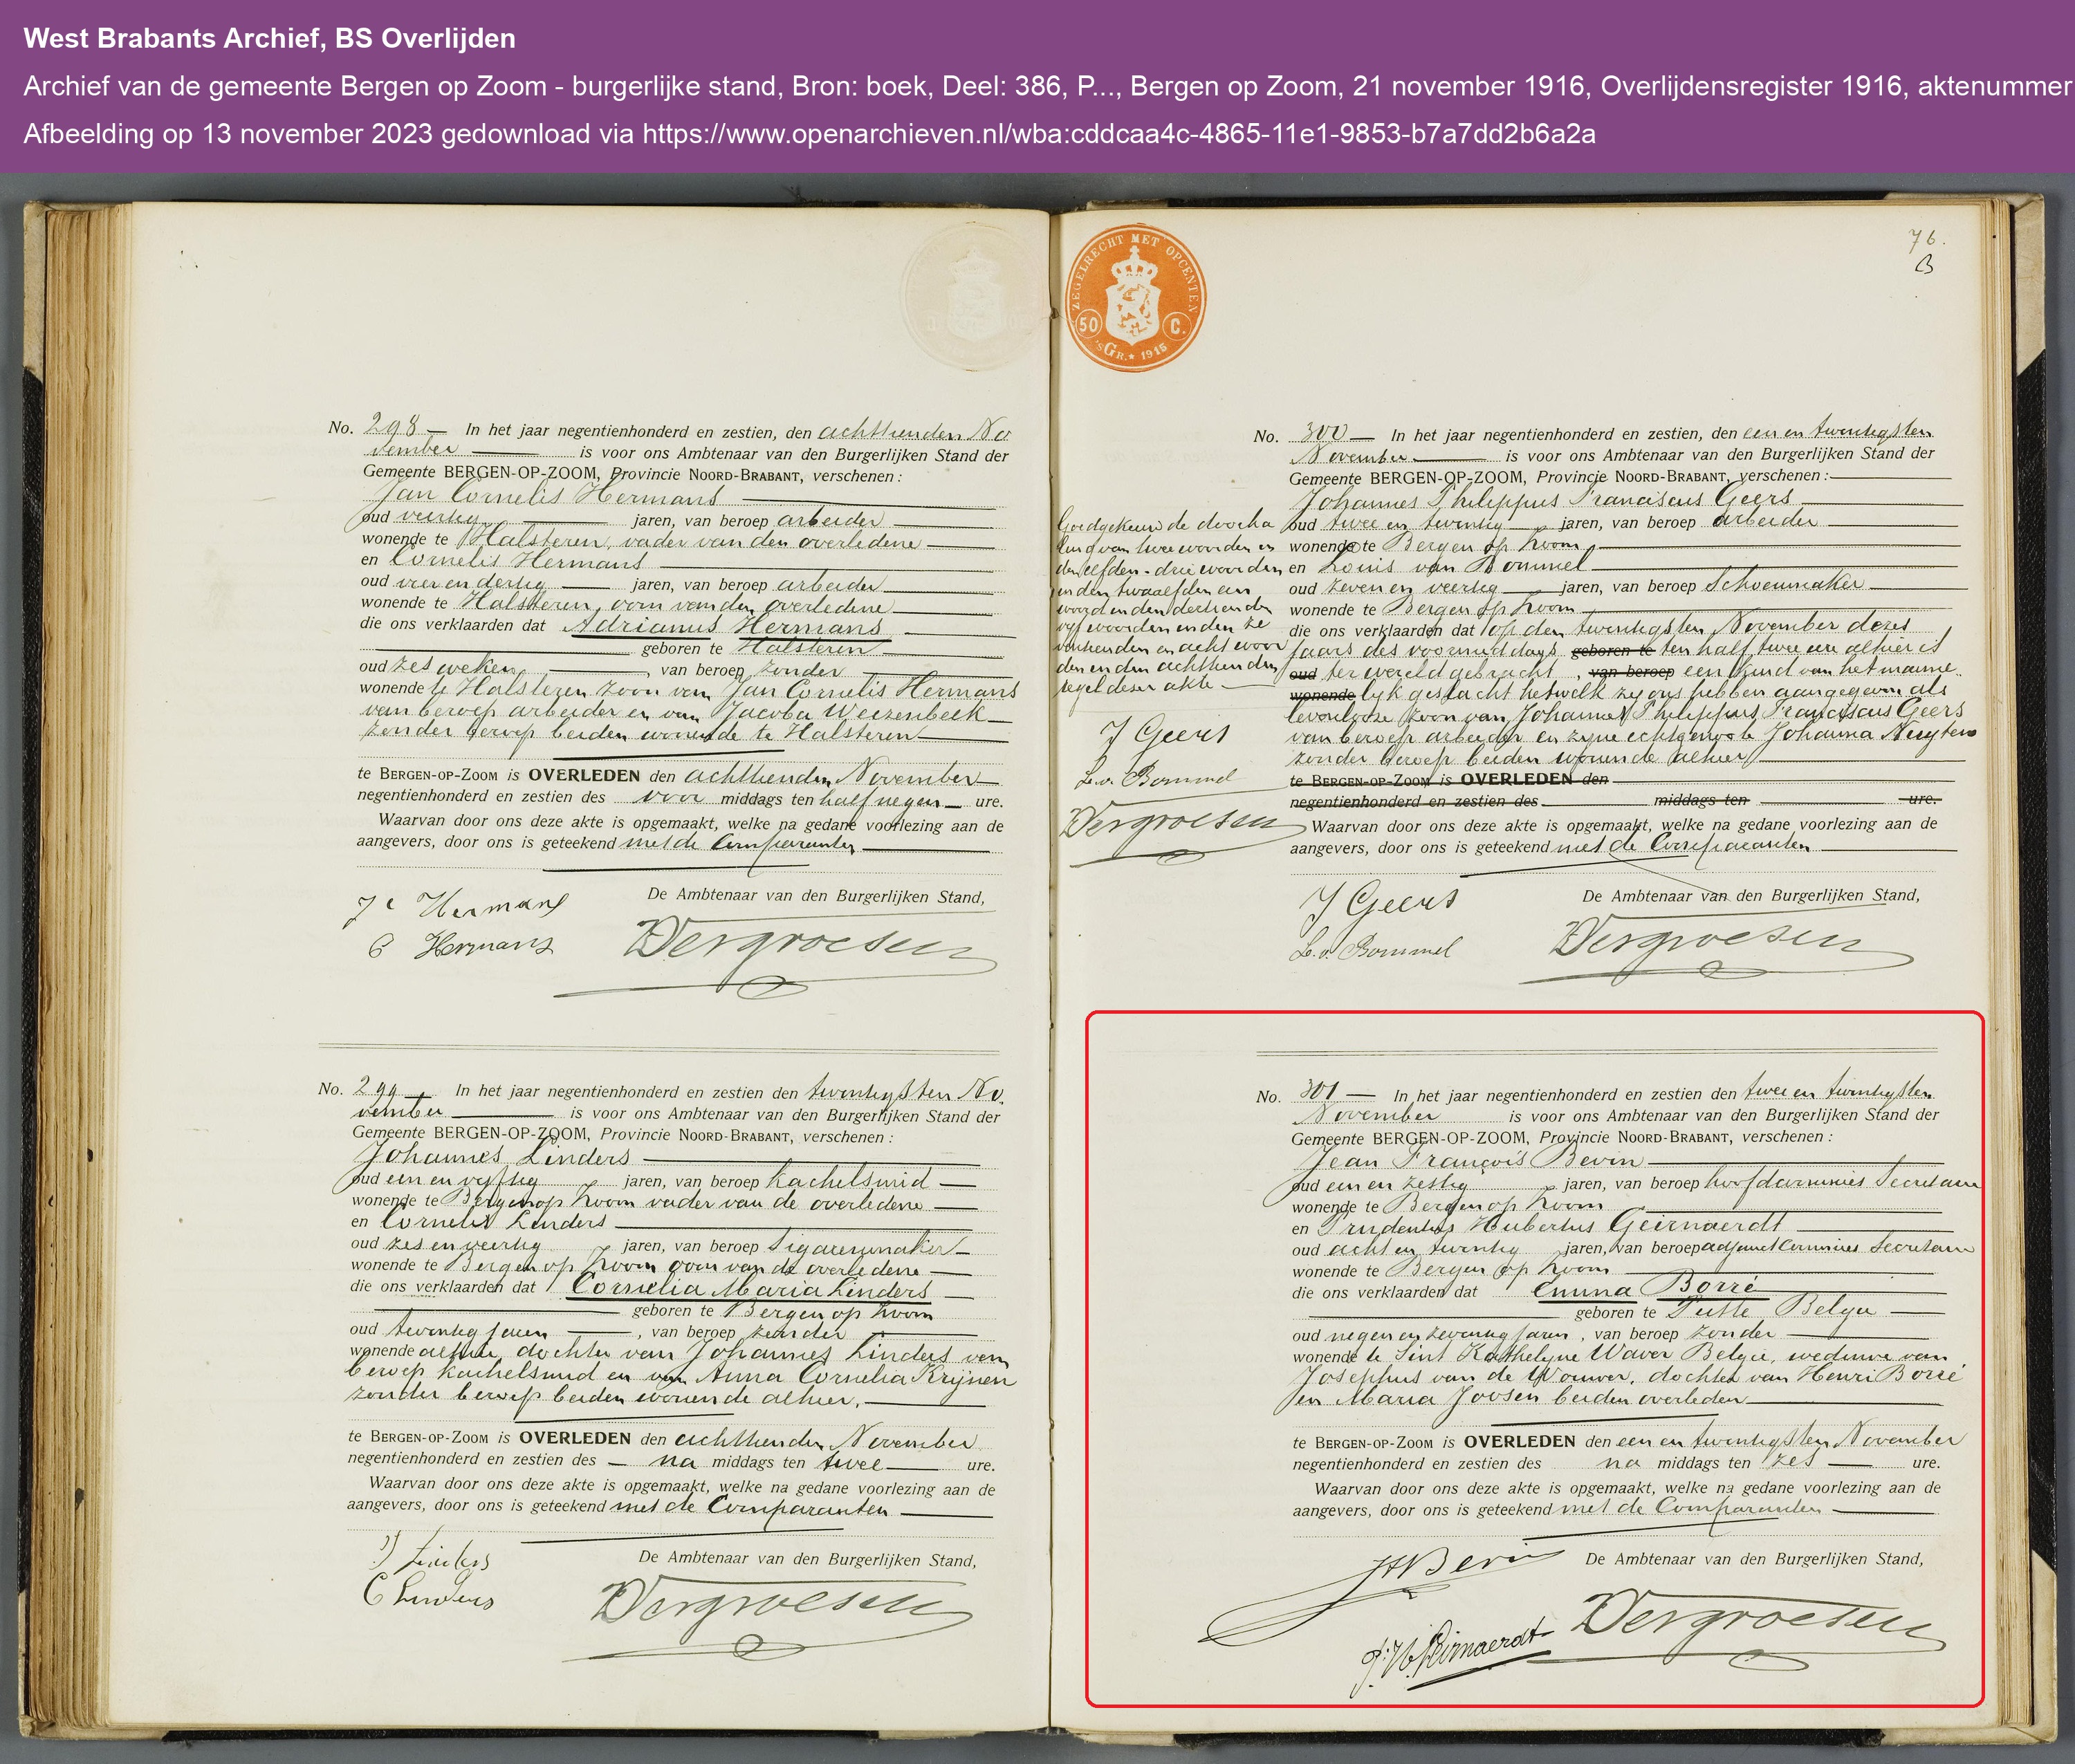 West Brabants Archief, BS Overlijden
Archief van de gemeente Bergen op Zoom - burgerlijke stand, Bron: boek, Deel: 386, P..., Bergen op Zoom, 21 november 1916, Overlijdensregister 1916, aktenummer
Afbeelding op 13 november 2023 gedownload via https://www.openarchieven.nl/wba:cddcaa4c-4865-11e1-9853-b7a7dd2b6a2a
No. 298 In het jaar negentienhonderd en zestien, den achttienden No
vember is voor ons Ambtenaar van den Burgerlijken Stand der
Gemeente BERGEN-OP-ZOOM, Provincie NOORD-BRABANT, verschenen:
Jan Cornelis Hermans
oud veertig jaren, van beroep arbeider
wonende te Halsteren, vader van den overledene
en Cornelis Hermans
oud vier en dertig jaren, van beroep arbeider
wonende te Halsteren, oom van den overledene
die ons verklaarden dat Adrianus Hermans
geboren te Halsteren
oud zes weken, van beroep zonder
wonende te Halsteren zoon van Jan Cornelis Hermans
van beroep arbeider en van Jacoba Weezenbeek
zonder beroep beiden wonende te Halsteren
te BERGEN-OP-ZOOM is OVERLEDEN den achttienden November
negentienhonderd en zestien des voor middags ten half negen ure.
Waarvan door ons deze akte is opgemaakt, welke na gedane voorlezing aan de
aangevers, door ons is geteekend met de Comparanten
De Ambtenaar van den Burgerlijken Stand,
Jc Hermans
C Hermans
Vergroesen
No. 299 In het jaar negentienhonderd en zestien den twintigsten No.
vember is voor ons Ambtenaar van den Burgerlijken Stand der
Gemeente BERGEN-OP-ZOOM, Provincie NOORD-BRABANT, verschenen:
Johannes Linders
oud een en vyftig jaren, van beroep kachelsmid
wonende te Bergen op Zoom vader van de overledene
en Cornelis Linders
oud zes en veertig jaren, van beroep sigarenmaker
wonende te Bergen op Zoom oom van de overledene
die ons verklaarden dat Cornelia Maria Linders
geboren te Bergen op Zoom
oud twintig jaren, van beroep zonder
wonende alhier, dochter van Johannes Linders van
beroep kachelsmid en van Anna Cornelia Krijnen
zonder beroep beiden wonende alhier.
te BERGEN-OP-ZOOM is OVERLEDEN den achttienden November
negentienhonderd en zestien des na middags ten twee ure.
Waarvan door ons deze akte is opgemaakt, welke na gedane voorlezing aan de
aangevers, door ons is geteekend met de Comparanten
De Ambtenaar van den Burgerlijken Stand,
J Linders
C Linders
Vergroesen
ZEGELRECHT MET OPCENTEN
50 C.
'sGR. 1915
76.
B
No. 300 In het jaar negentienhonderd en zestien, den een en twintigsten
November is voor ons Ambtenaar van den Burgerlijken Stand der
Gemeente BERGEN-OP-ZOOM, Provincie NOORD-BRABANT, verschenen:
Johannes Philippus Franciscus Geers
oud twee en twintig jaren, van beroep arbeider
wonende te Bergen op Zoom
en Louis van Bommel
oud zeven en veertig jaren, van beroep Schoenmaker
wonende te Bergen op Zoom
die ons verklaarden dat op den twintigsten November dezes
jaars des voormiddags geboren te ten half twee ure alhier is
oud ter wereld gebracht, van beroep een kind van het manne
wonende lyk geslacht hetwelk zy ons hebben aangegeven als
levenlooze zoon van Johannes Philippus Franciscus Geers
van beroep arbeider en zyne echtgenoote Johanna Nuyten
zonder beroep beiden wonende alhier
te BERGEN-OP-ZOOM is OVERLEDEN den
negentienhonderd en zestien des middags ten ure.
Waarvan door ons deze akte is opgemaakt, welke na gedane voorlezing aan de
aangevers, door ons is geteekend met de Comparanten
De Ambtenaar van den Burgerlijken Stand,
J Geers
L.v. Bommel
Vergroesen
Goedgekeurd de doorha
ling van twee woorden in
den elfden - drie woorden
in den twaalfden een
woord in den dertienden
vyf woorden in den ze
ventienden en acht woor
den in den achttienden
regel dezer akte
J Geers
L.v. Bommel
Vergroesen
No. 301 In het jaar negentienhonderd en zestien den twee en twintigsten
November is voor ons Ambtenaar van den Burgerlijken Stand der
Gemeente BERGEN-OP-ZOOM, Provincie NOORD-BRABANT, verschenen:
Jean François Bevin
oud een en zestig jaren, van beroep hoofdcommies Secretarie
wonende te Bergen op Zoom
en Prudentus Hubertus Geirnaerdt
oud acht en twintig jaren, van beroep adjunct Commies Secretarie
wonende te Bergen op Zoom
die ons verklaarden dat Emma Borré
geboren te Putte Belgie
oud negen en zeventig jaren, van beroep zonder
wonende te Sint Kathelyne Waver Belgie, weduwe van
Josephus van de Wouwer, dochter van Henri Borré
en Maria Joosen beiden overleden
te BERGEN-OP-ZOOM is OVERLEDEN den een en twintigsten November
negentienhonderd en zestien des na middags ten zes ure.
Waarvan door ons deze akte is opgemaakt, welke na gedane voorlezing aan de
aangevers, door ons is geteekend met de Comparanten
De Ambtenaar van den Burgerlijken Stand,
Bevin
P.H. Geirnaerdt
Vergroesen